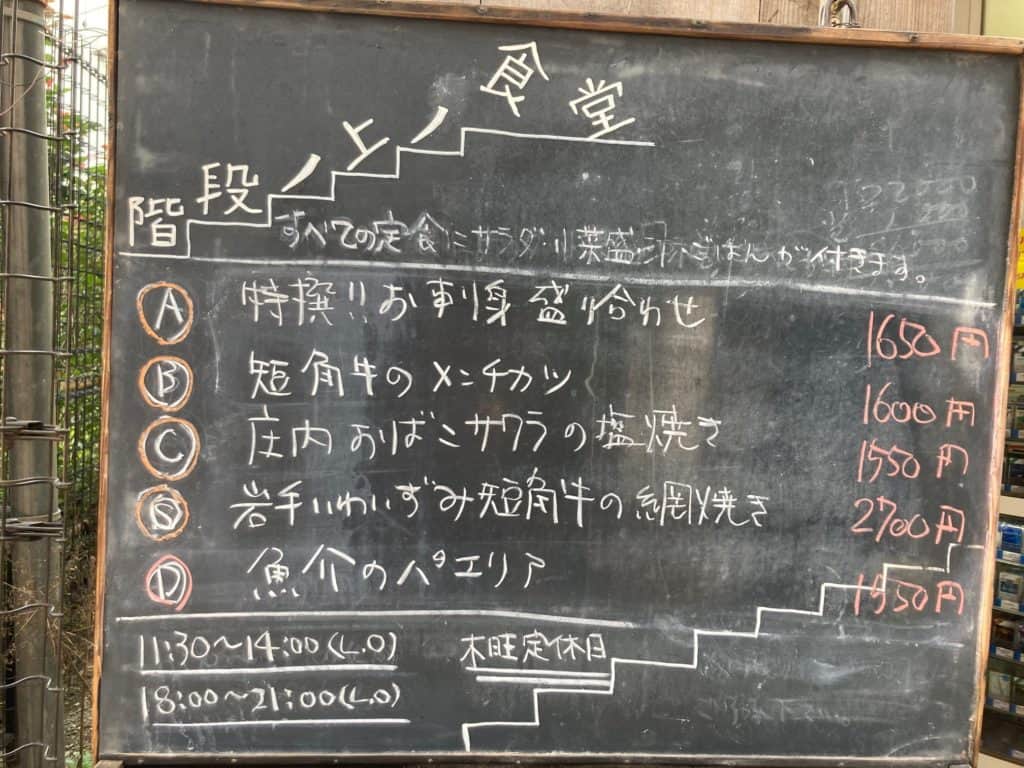 階段ノ上ノ食堂
すべての定食にサラダ・小菜盛・汁・ごはんが付きます。
A 特撰!!お刺身盛り合わせ 1650円
B 短角牛のメンチカツ 1600円
C 庄内おばこサワラの塩焼き 1550円
S 岩手いわいずみ短角牛の網焼き 2700円
D 魚介のパエリア 1550円
11:30〜14:00(L.O) 木曜定休日
18:00〜21:00(L.O)